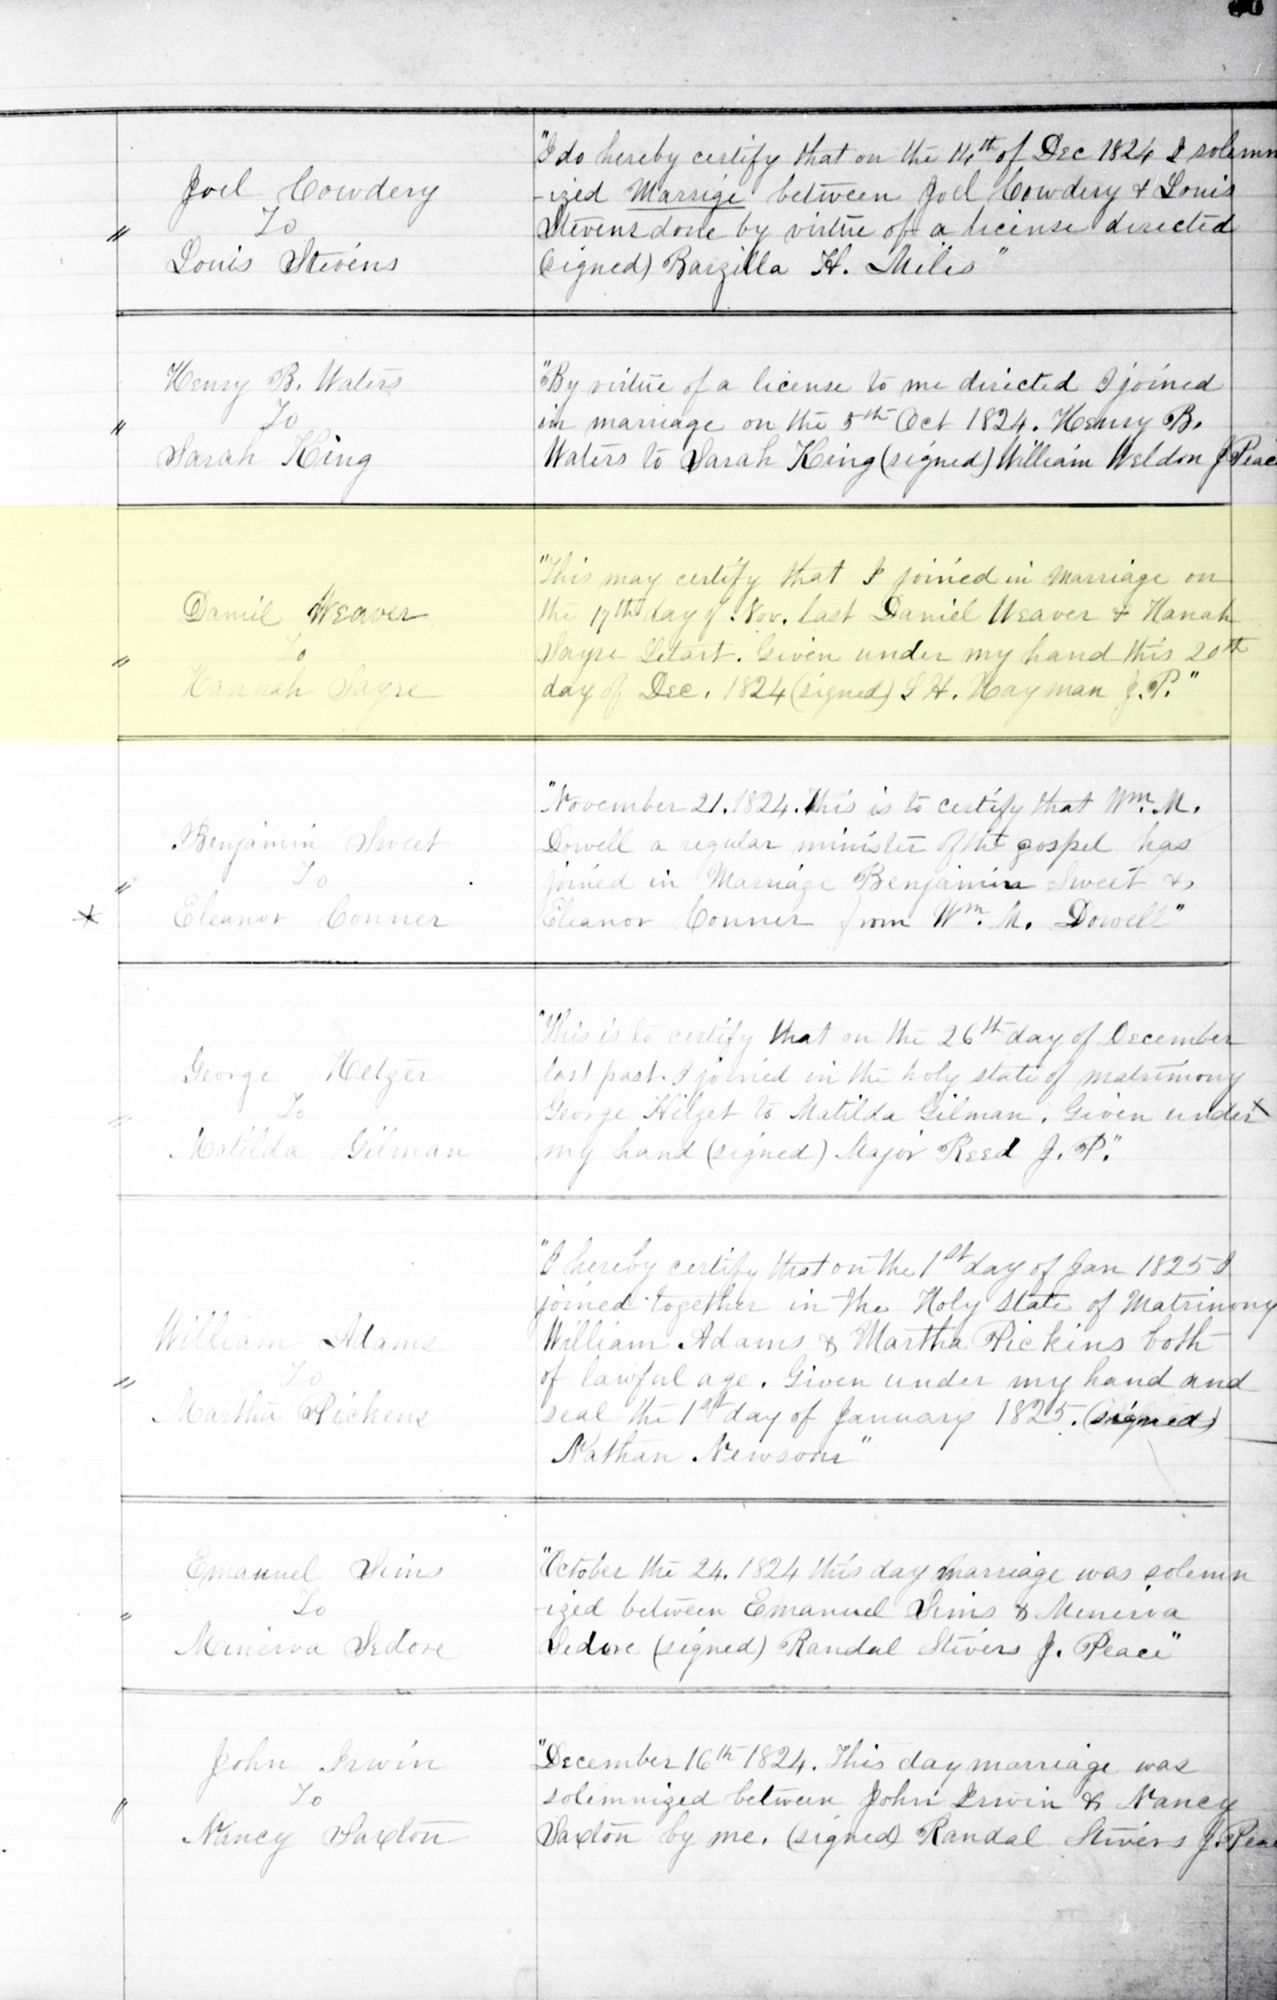 Joel Cowdery
To
" Louis Stevens
"I do hereby certify that on the 14th of Dec 1824 I solemn
-ized Marrige between Joel Cowdery & Louis
Stevens done by virtue of a license directed
(signed) Barzilla H. Miles"
Henry B. Waters
" To
Sarah King
"By virtue of a license to me directed I joined
in marriage on the 5th Oct 1824. Henry B.
Waters to Sarah King (signed) William Weldon J Peace
Daniel Weaver
" To
Hannah Sayre
"This may certify that I joined in marriage on
the 17th day of Nov. last Daniel Weaver & Hanah
Sayre Letart. Given under my hand this 20th
day of Dec. 1824 (signed) S H. Hayman J.P."
Benjamin Sweet
" To
* Eleanor Conner
"November 21. 1824. This is to certify that Wm. M.
Dowell a regular minister of the gospel has
joined in Marriage Benjamin Sweet &
Eleanor Conner from Wm. M. Dowell"
George Hetzer
" To
Matilda Gilman
"This is to certify that on the 26th day of December
last past. I joined in the holy state of matrimony
George Hilzet to Matilda Gilman. Given under x
my hand (signed) Major Reed J. P."
William Adams
" To
Martha Pickens
"I hereby certify that on the 1st day of Jan 1825 I
joined together in the Holy State of Matrimony
William Adams & Martha Pickins both
of lawful age. Given under my hand and
seal the 1st day of January 1825. (signed)
Nathan Newsom"
Emanuel Sims
" To
Minerva Sedore
"October the 24. 1824 this day marriage was solemn
-ized between Emanuel Sims & Minerva
Sedore (signed) Randal Stivers J. Peace"
John Irwin
" To
Nancy Saxton
"December 16th 1824. This day marriage was
solemnized between John Irwin & Nancy
Saxton by me. (signed) Randal Stivers J. Peace